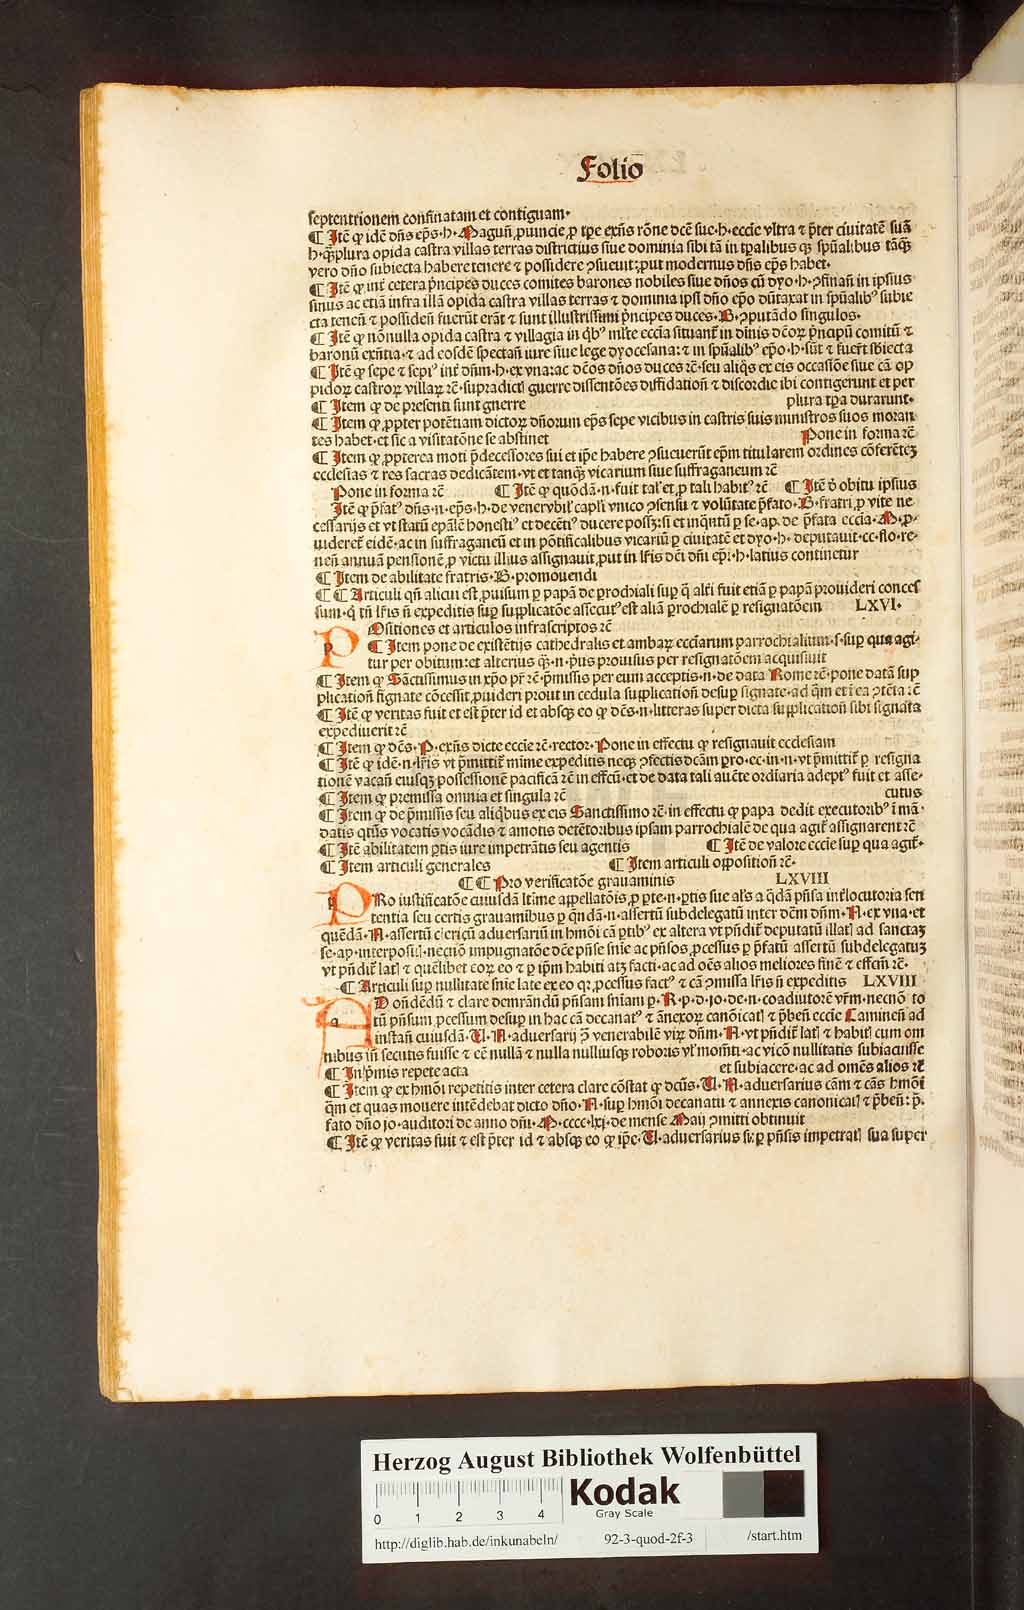 Folio
septentrionem confinatam et contiguam·
¶ Itē ꝙ idē dn̄s ep̄s·h·Magun̄ ꝓuincie ꝓ tp̄e exn̄s rōne dcē sue·h·eccīe vltra ⁊ p̄ter ciuitatē suā
h·qꝫplura opida castra villas terras districtius siue dominia sibi tā in tp̄alibus qꝫ spūalibus tāqꝫ
vero dn̄o subiecta habere tenere ⁊ possidere ꝯsueuit:ꝓut modernus dn̄s ep̄s habet·
¶ Itē ꝙ int̄ cetera p̄ncipes duces comites barones nobiles siue dn̄os cū dyo·h·ꝯfinan̄ in ipsius
sinus ac etiā infra illā opida castra villas terras ⁊ dominia ipsi dn̄o ep̄o dūtaxat in spūalibꝰ subie
cta tenen̄ ⁊ possiden̄ fuerūt erāt ⁊ sunt illustrissimi p̄ncipes duces·B·ꝯputādo singulos·
¶ Itē ꝙ nōnulla opida castra ⁊ villagia in qͥbꝰ ml̄te eccīa situant̄ in dīnis dc̄oꝝ p̄ncipū comitū ⁊
baronū exn̄tia·⁊ ad eosdē spectan̄ iure siue lege dyocesana:⁊ in spūalibꝰ ep̄o·h·sūt ⁊ fuer̄t sb̄iecta
¶ Itē ꝙ sepe ⁊ sepiꝰ int̄ dn̄m·h·ex vna:ac dc̄os dn̄os duces rē·seu aliqͦs ex eis occasiōe siue cā op
pidoꝝ castroꝝ villaꝝ rē·supradictꝭ guerre dissentōes diffidation̄ ⁊ discordie ibi contigerunt et per
¶ Item ꝙ de presenti sunt gnerre plura tꝑa durarunt·
¶ Item ꝙ ꝓpter potētiam dictoꝝ dn̄orum ep̄s sepe vicibus in castris suis ministros suos moran
tes habet·et sic a visitatōne se abstinet Pone in forma rē
¶ Item ꝙ ꝓpterea moti p̄decessores sui et ip̄e habere ꝯsueuerūt ep̄m titularem ordines cōferēteꝫ
ecclesias ⁊ res sacras dedicātem·vt et tanqꝫ vicarium siue suffraganeum rē
Pone in forma rē ¶ Itē ꝙ quōdā·n·fuit tal' et ꝓ tali habitꝰ rē ¶ Itē ꝙ obitu ipsius
Itē ꝙ p̄fatꝰ dn̄s·n·ep̄s·h·de venervbil' capl'i vnico ꝯsensu ⁊ volūtate p̄fato·B·fratri ꝓ vite ne
cessarijs et vt statū ep̄ālē honestiꝰ et decētiꝰ ducere possꝫ:si et inqͣntū ꝑ se·ap·de p̄fata eccia·M·ꝓ·
uideret̄ eidē·ac in suffraganeū et in pōtificalibus vicariū ꝑ ciuitatē et dyo·h·deputauit·cc·flo·re·
nen̄ annuā pensionē ꝓ victu illius assignauit ꝓut in lr̄is dc̄i dn̄i ep̄i·h·latius continetur
¶ Item de abilitate fratris·B·promouendi
¶ ¶ Articuli qn̄ alicui est ꝓuisum ꝑ papā de ꝑochiali suꝑ q̄ alt̄i fuit etiā ꝑ papā prouideri conces
sum·q̇ tn̄ lr̄is n̄ expeditis suꝑ supplicatōe assecutꝰ est aliā ꝑrochialē ꝑ resignatōem LXVI·
POsitiones et articulos infrascriptos rē
¶ Item pone de existētijs cathedralis et ambaꝝ eccīarum parrochialium·s·suꝑ qua agi·
tur per obitum:et alterius q̄·n·p̄us prouisus per resignatōem acquisiuit
¶ Item ꝙ Sāctissimus in xp̄o pr̄ rē·p̄missis per eum acceptis·n·de data Rome rē·pone datā sup
plication̄ signate cōcessit ꝓuideri prout in cedula supplication̄ desuꝑ signate·ad q̄m et ī ea ꝯtēta rē
¶ Itē ꝙ veritas fuit et est p̄ter id et absqꝫ eo ꝙ dc̄s·n·litteras super dicta supplication̄ sibi signata
expediuerit rē
¶ Item ꝙ dc̄s·P·exn̄s dicte eccīe rē·rector·Pone in effectu ꝙ resignauit ecclesiam
¶ Itē ꝙ idē·n·lr̄is vt p̄mittit̄ mime expeditis neqꝫ ꝯfectis dcām ꝑro·ec·in·n·vt p̄mittit̄ ꝑ resigna
tionē vacan̄ eiusqꝫ possessionē pacificā rē in effcū·et de data tali auēte ordiaria adeptꝰ fuit et asse·
¶ Item ꝙ premissa omnia et singula rē cutus
¶ Item ꝙ de p̄missis seu aliqͥbus ex eis Sanctissimo rē·in effectu ꝙ papa dedit executoribꝰ ī mā·
datis qtn̄s vocatis vocādis ⁊ amotis detētoribus ipsam parrochialē de qua agit̄ assignarent rē
¶ Itē abilitatem ꝑtis iure impetrātis seu agentis ¶ Itē de valore eccīe suꝑ qua agit̄·
¶ Item articuli generales ¶ Item articuli opposition̄ rē·
¶ ¶ Pro verificatōe grauaminis LXVIII
PRo iustificatōe cuiusdā ltīme appellatōis ꝓ ꝑte·n·ꝑtis sue al's a q̄dā pn̄sa int̄locutoria sen
tentia seu certis grauamibus ꝑ qn̄dā·n·assertū subdelegatū inter dc̄m dn̄m·A·ex vna·et
quēdā·N·assertū clericū aduersariū in hm̄oi cā ꝑtibꝰ ex altera vt pn̄dit̄ deputatū illatꝭ ad sanctaꝫ
se·ap·interposi:ꝭ·necnō impugnatōe dcē pn̄se sn̄ie ac pn̄sos ꝓcessus ꝑ p̄fatū assertū subdelegatuꝫ
vt pn̄dit̄ latꝭ ⁊ quēlibet coꝝ eo ⁊ ꝑ ip̄m habiti atꝫ facti·ac ad oēs alios meliores finē ⁊ effcm̄ rē·
¶ Articuli suꝑ nullitate sn̄ie late ex eo qꝛ ꝓcessus factꝰ ⁊ cā ꝯmissa lr̄is n̄ expeditis LXVIII
AD on̄dēdū ⁊ clare demrāndū pn̄sam sn̄iam ꝑ·R·p·d·jo·de·n·coadiutorē vr̄m·necnō to
tū pn̄sum ꝓcessum desuꝑ in hac cā decanatꝰ ⁊ ānexoꝝ canōicatꝭ ⁊ p̄ben̄ eccīe Caminen̄ ad
instan̄ cuiusdā·U·N·aduersarij ꝯ venerabilē viꝝ dn̄m·A·vt pn̄dit̄ latꝭ ⁊ habitꝭ cum om
nibus in̄ secutis fuisse ⁊ eē nullā ⁊ nulla nulliusqꝫ roboris vl' momēti·ac vicō nullitatis subiacuisse
¶ In p̄mis repete acta et subiacere·ac ad omēs alios rē
¶ Item ꝙ ex hm̄oi repetitis inter cetera clare cōstat ꝙ dc̄us·U·N·aduersarius cām ⁊ cās hm̄oi
q̄m et quas mouere intēdebat dicto dn̄o·A·suꝑ hm̄oi decanatu ⁊ annexis canonicatꝭ ⁊ p̄ben̄:p̄·
fato dn̄o jo·auditori de anno dn̄i·M·cccc·lxj·de mense Maij ꝯmitti obtinuit
¶ Itē ꝙ veritas fuit ⁊ est p̄ter id ⁊ absqꝫ eo ꝙ ip̄e·U·aduersarius suꝑ pn̄sis impetratꝭ sua super
Herzog August Bibliothek Wolfenbüttel
0 1 2 3 4
Kodak
Gray Scale
http://diglib.hab.de/inkunabeln/ 92-3-quod-2f-3 /start.htm